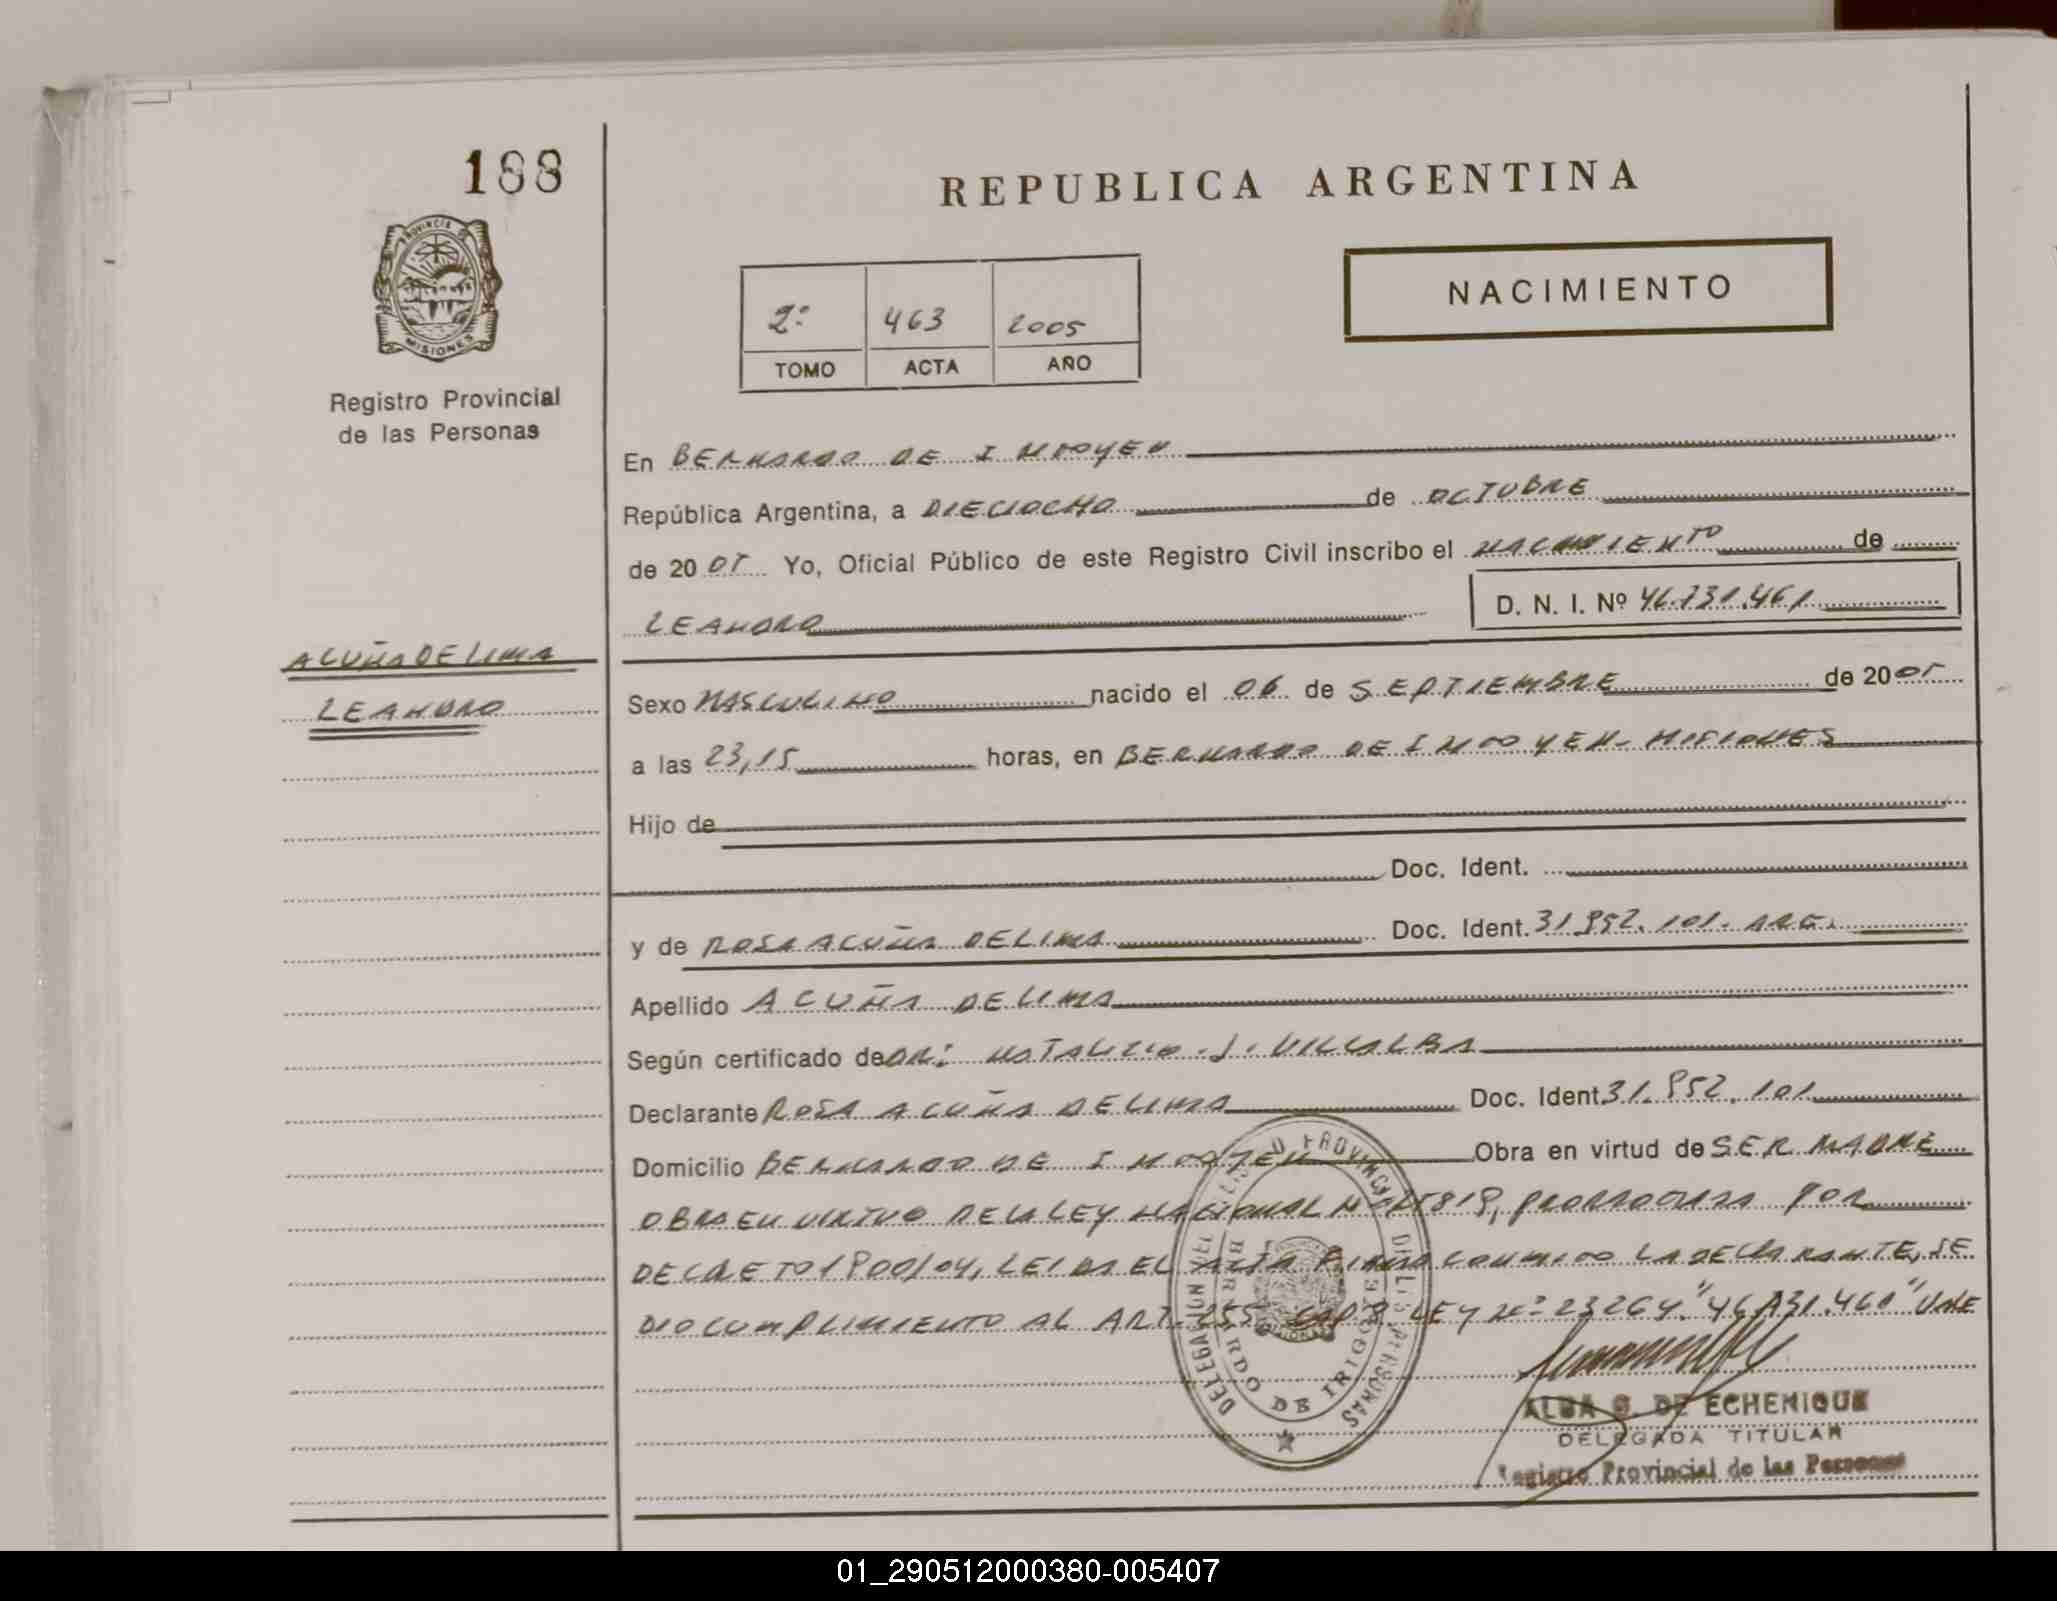 188
REPUBLICA ARGENTINA
PROVINCIA DE
MISIONES
Registro Provincial
de las Personas
NACIMIENTO
2º 463 2005
TOMO ACTA AÑO
En BERNARDO DE IRIGOYEN
República Argentina, a DIECIOCHO de OCTUBRE
de 2005 Yo, Oficial Público de este Registro Civil inscribo el NACIMIENTO de
LEANDRO D. N. I. Nº 46.731.461
ACUÑA DE LIMA
LEANDRO
Sexo MASCULINO nacido el 06 de SEPTIEMBRE de 2005
a las 23,15 horas, en BERNARDO DE IRIGOYEN - MISIONES
Hijo de
Doc. Ident.
y de ROSA ACUÑA DE LIMA Doc. Ident. 31.852.101. ARG.
Apellido ACUÑA DE LIMA
Según certificado de DR: NATALICIO J. VILLALBA
Declarante ROSA ACUÑA DE LIMA Doc. Ident. 31.852.101
Domicilio BERNARDO DE IRIGOYEN Obra en virtud de SER MADRE
OBRA EN VIRTUD DE LA LEY NACIONAL Nº 25819, PRORROGADA POR
DECRETO 1800/04, LEIDA EL ACTA FIRMA CONMIGO LA DECLARANTE, SE
DIO CUMPLIMIENTO AL ART. 255 LEY Nº 23264. " 461" VALE
DELEGACION DEL REGISTRO PROVINCIAL DE LAS PERSONAS
BERNARDO DE IRIGOYEN
ALBA G. DE ECHENIQUE
DELEGADA TITULAR
Registro Provincial de las Personas
01_290512000380-005407